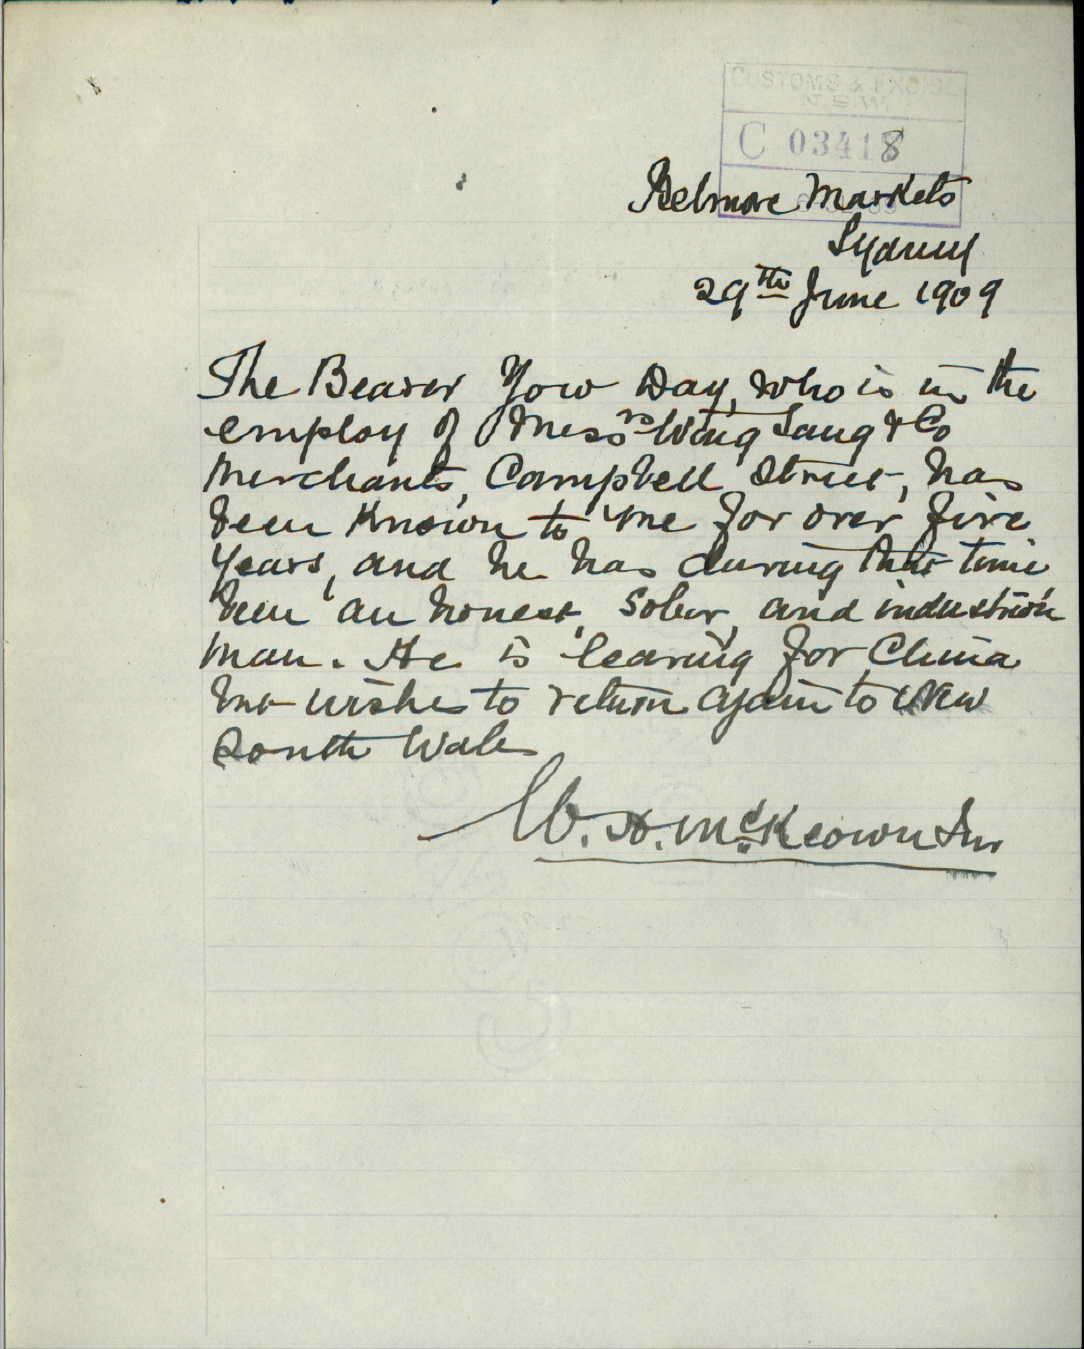 CUSTOMS & EXCISE
N.S.W.
C 03418
Belmore Markets
Sydney
29th June 1909
The Bearer Yow Day, who is in the
employ of Messrs Wing Sang & Co
Merchants, Campbell Street, has
been known to me for over five
years, and he has during that time
been an honest, sober, and industrious
man. He is leaving for China
but wishes to return again to New
South Wales
W. H. McKeown Jnr